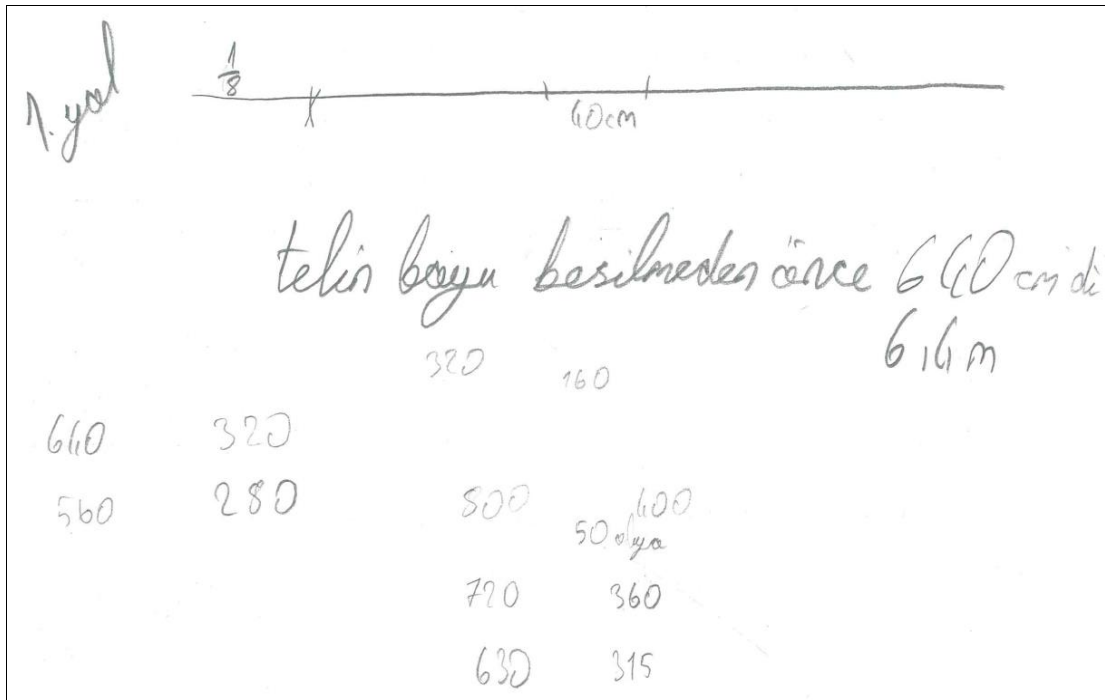 1. yol
1/8
40cm
telin boyu kesilmeden önce 640 cm di
6,4 m
320 160
640 320
560 280 800 400
50 olya
720 360
630 315